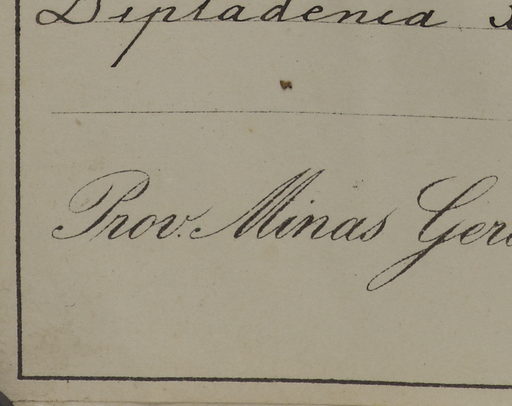 Dipladenia
Prov. Minas Ger